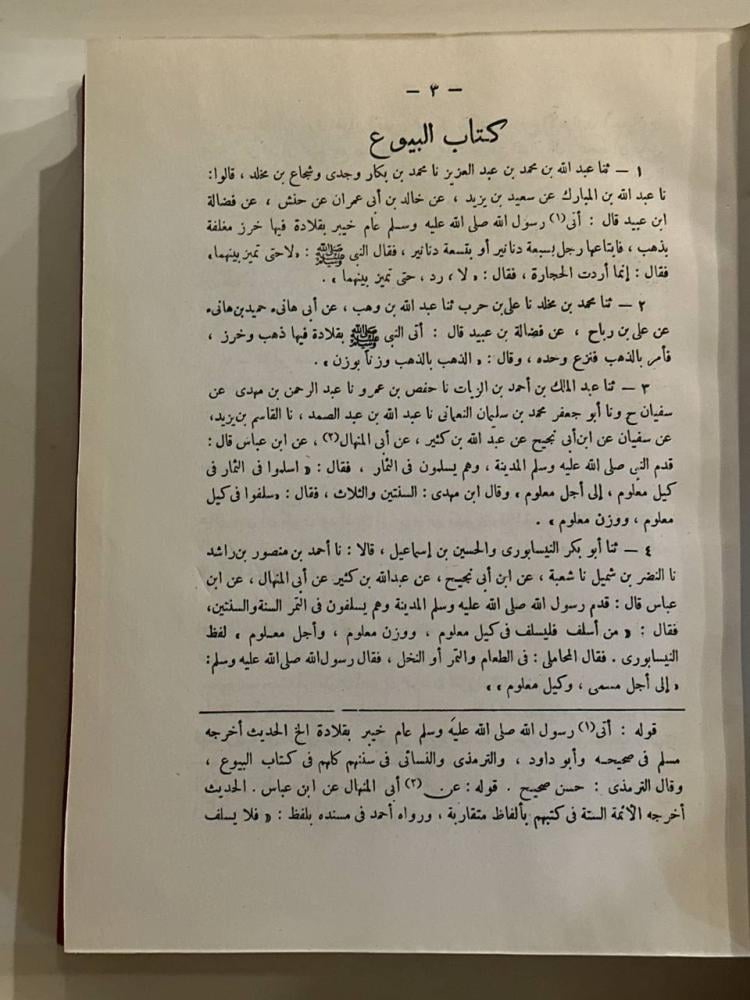 — ٣ —
كتاب البيوع
١ — ثنا عبد الله بن محمد بن عبد العزيز نا محمد بن بكار وجدى وشجاع بن مخلد ، قالوا:
نا عبد الله بن المبارك عن سعيد بن يزيد ، عن خالد بن أبى عمران عن حنش ، عن فضالة
ابن عبيد قال : أتى(١) رسول الله صلى الله عليه وسلم عام خيبر بقلادة فيها خرز مغلفة
بذهب ، فابتاعها رجل بسبعة دنانير أو بتسعة دنانير ، فقال النبى ﷺ : «لا حتى تميز بينهما»
فقال : إنما أردت الحجارة ، فقال : « لا ، رد ، حتى تميز بينهما » .
٢ — ثنا محمد بن مخلد نا على بن حرب ثنا عبد الله بن وهب ، عن أبى هانىء حميد بن هانىء
عن على بن رباح ، عن فضالة بن عبيد قال : أتى النبى ﷺ بقلادة فيها ذهب وخرز ،
فأمر بالذهب فنزع وحده ، وقال : « الذهب بالذهب وزناً بوزن » .
٣ — ثنا عبد الملك بن أحمد بن الزيات نا حفص بن عمرو نا عبد الرحمن بن مهدى عن
سفيان ح ونا أبو جعفر محمد بن سليمان النعمانى نا عبد الله بن عبد الصمد ، نا القاسم بن يزيد،
عن سفيان عن ابن أبى نجيح عن عبد الله بن كثير ، عن أبى المنهال(٢) ، عن ابن عباس قال :
قدم النبى صلى الله عليه وسلم المدينة ، وهم يسلمون فى الثمار ، فقال : « اسلموا فى الثمار فى
كيل معلوم ، إلى أجل معلوم » وقال ابن مهدى : السنتين والثلاث ، فقال : «سلفوا فى كيل
معلوم ، ووزن معلوم » .
٤ — ثنا أبو بكر النيسابورى والحسين بن إسماعيل ، قالا : نا أحمد بن منصور بن راشد
نا النضر بن شميل نا شعبة ، عن ابن أبى نجيح ، عن عبدالله بن كثير عن أبى المنهال ، عن ابن
عباس قال : قدم رسول الله صلى الله عليه وسلم المدينة وهم يسلفون فى التمر السنة والسنتين،
فقال : « من أسلف فليسلف فى كيل معلوم ، ووزن معلوم ، وأجل معلوم » لفظ
النيسابورى . فقال المحاملى : فى الطعام والتمر أو النخل ، فقال رسول الله صلى الله عليه وسلم:
« إلى أجل مسمى ، وكيل معلوم » »
قوله : أتى(١) رسول الله صلى الله عليه وسلم عام خيبر بقلادة الخ الحديث أخرجه
مسلم فى صحيحه وأبو داود ، والترمذى والنسائى فى سننهم كلهم فى كتاب البيوع ،
وقال الترمذى : حسن صحيح . قوله : عن (٢) أبى المنهال عن ابن عباس . الحديث
أخرجه الأئمة الستة فى كتبهم بألفاظ متقاربة ، ورواه أحمد فى مسنده بلفظ : « فلا يسلف